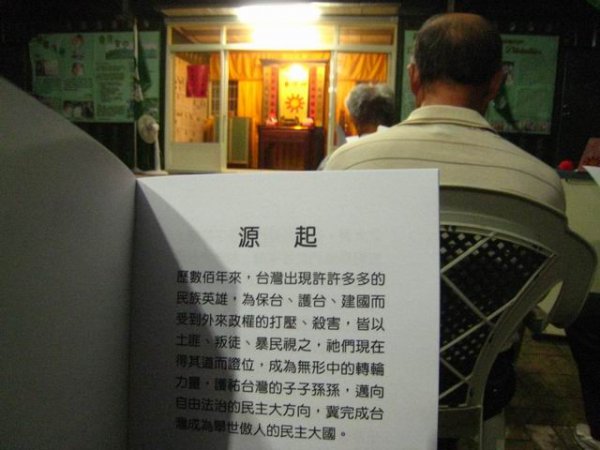 源 起
歷數佰年來，台灣出現許許多多的
民族英雄，為保台、護台、建國而
受到外來政權的打壓、殺害，皆以
土匪、叛徒、暴民視之，祂們現在
得其道而證位，成為無形中的轉輪
力量，護祐台灣的子子孫孫，邁向
自由法治的民主大方向，冀完成台
灣成為舉世傲人的民主大國。